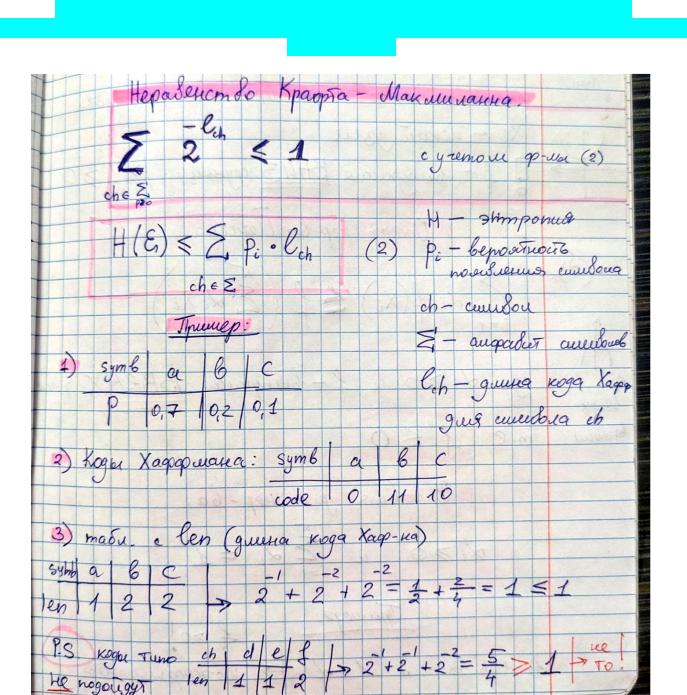 Неравенство Крафта - Макмиллана.
∑ 2^(-l_ch) ≤ 1
ch ∈ ∑
с учетом ф-лы (2)
H(ξ) ≤ ∑ p_i · l_ch (2)
ch ∈ ∑
H — энтропия
p_i — вероятность
появления символа
ch — символ
∑ — алфавит символов
l_ch — длина кода Хафф
для символа ch
Пример:
1) symb | a | b | c
P | 0,7 | 0,2 | 0,1
2) Коды Хаффмана: symb | a | b | c
code | 0 | 11 | 10
3) табл. с len (длина кода Хаф-на)
symb | a | b | c
len | 1 | 2 | 2 → 2^-1 + 2^-2 + 2^-2 = 1/2 + 2/4 = 1 ≤ 1
P.S коды типо ch | d | e | f → 2^-1 + 2^-1 + 2^-2 = 5/4 ≥ 1 → не то!
не подойдут len | 1 | 1 | 2